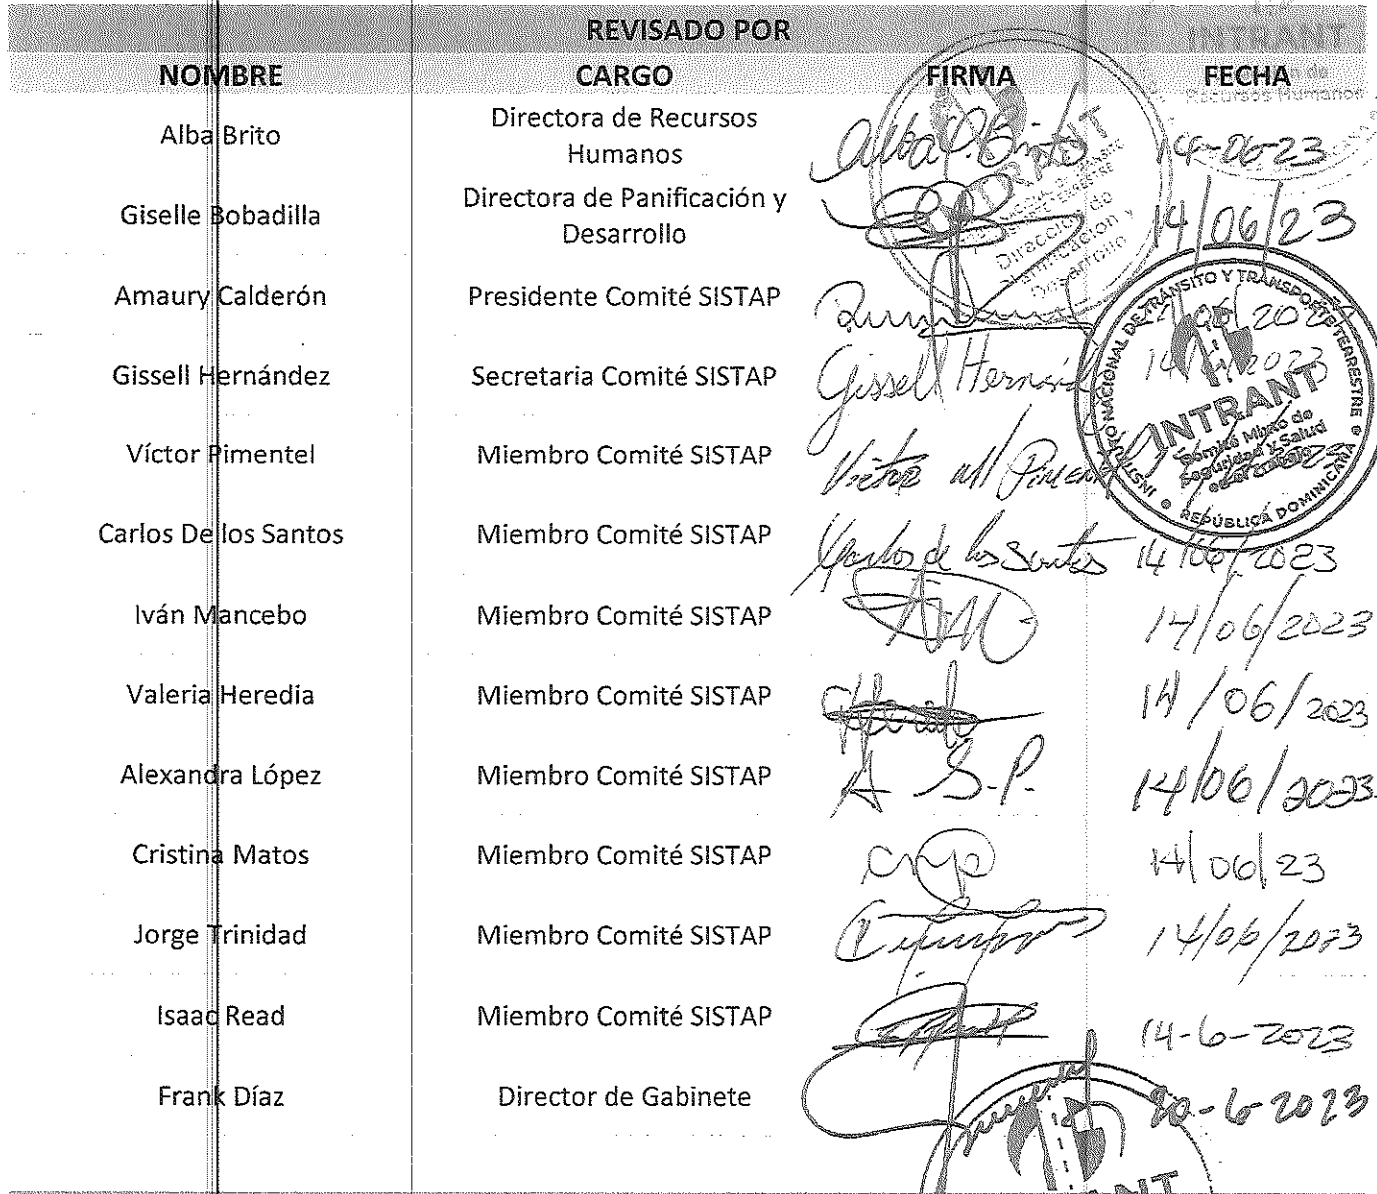 REVISADO POR
NOMBRE CARGO FIRMA FECHA
Alba Brito Directora de Recursos Humanos Alba Brito 14-06-23
Giselle Bobadilla Directora de Panificación y Desarrollo 14/06/23
Amaury Calderón Presidente Comité SISTAP
Gissell Hernández Secretaria Comité SISTAP Gissell Hernánd 2023
Víctor Pimentel Miembro Comité SISTAP Victor Pimen
Carlos De los Santos Miembro Comité SISTAP Carlos de los Santos 14/06/2023
Iván Mancebo Miembro Comité SISTAP 14/06/2023
Valeria Heredia Miembro Comité SISTAP 14/06/2023
Alexandra López Miembro Comité SISTAP 14/06/2023
Cristina Matos Miembro Comité SISTAP 14/06/23
Jorge Trinidad Miembro Comité SISTAP 14/06/2023
Isaac Read Miembro Comité SISTAP 14-6-2023
Frank Díaz Director de Gabinete 20-6-2023
INTRANT
Recursos Humanos
Dirección de
Planificación y
Desarrollo
INSTITUTO NACIONAL DE TRÁNSITO Y TRANSPORTE TERRESTRE
INTRANT
Comité Mixto de
Seguridad y Salud
en el trabajo
REPÚBLICA DOMINICANA